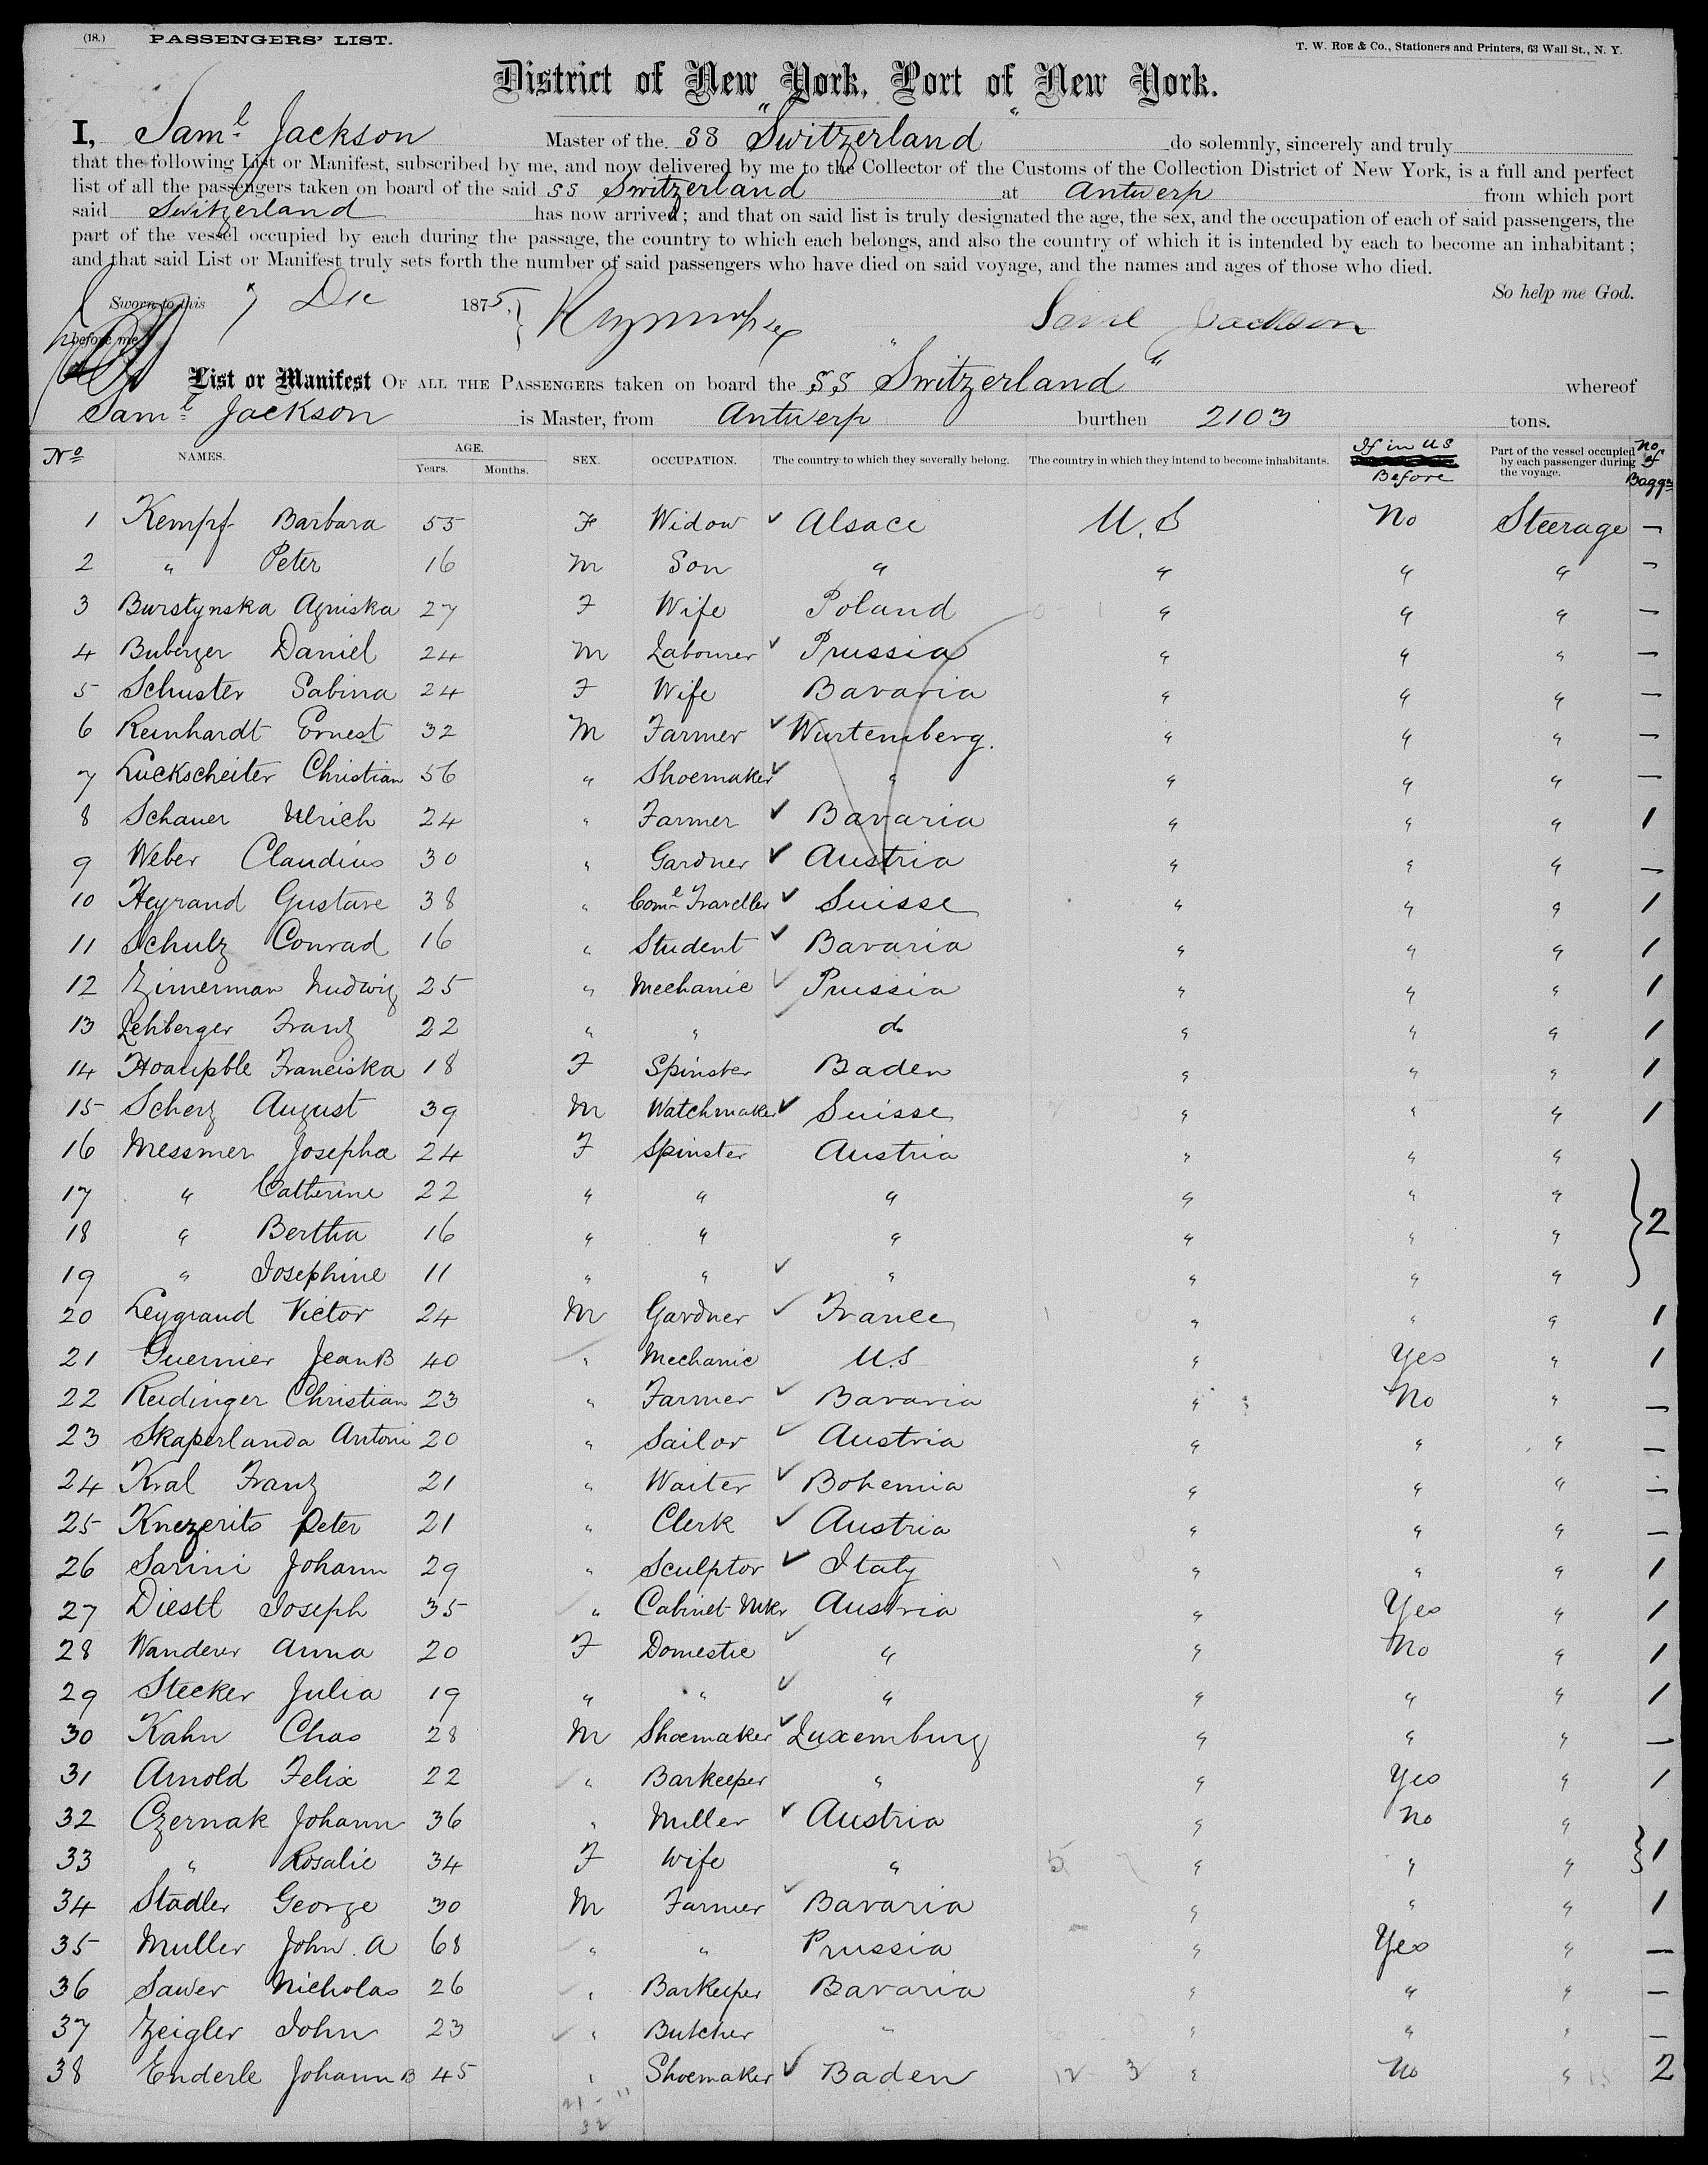 (18.) PASSENGERS' LIST. T. W. ROE & Co., Stationers and Printers, 63 Wall St., N. Y.
District of New York, Port of New York.
I, Saml Jackson Master of the SS "Switzerland" do solemnly, sincerely and truly
that the following List or Manifest, subscribed by me, and now delivered by me to the Collector of the Customs of the Collection District of New York, is a full and perfect
list of all the passengers taken on board of the said SS Switzerland at Antwerp from which port
said Switzerland has now arrived; and that on said list is truly designated the age, the sex, and the occupation of each of said passengers, the
part of the vessel occupied by each during the passage, the country to which each belongs, and also the country of which it is intended by each to become an inhabitant;
and that said List or Manifest truly sets forth the number of said passengers who have died on said voyage, and the names and ages of those who died.
So help me God.
Sworn to this 7 Dec 1875. Saml Jackson
before me
List or Manifest OF ALL THE PASSENGERS taken on board the SS "Switzerland" whereof
Saml Jackson is Master, from Antwerp burthen 2103 tons.
No NAMES. AGE. Years. Months. SEX. OCCUPATION. The country to which they severally belong. The country in which they intend to become inhabitants. If in US Before Part of the vessel occupied by each passenger during the voyage. No of Baggs
1 Kempf Barbara 55 F Widow Alsace U.S No Steerage —
2 " Peter 16 M Son " " " " —
3 Burstynska Agniska 27 F Wife Poland " " " —
4 Buberger Daniel 24 M Labourer Prussia " " " —
5 Schuster Sabina 24 F Wife Bavaria " " " —
6 Reinhardt Ernest 32 M Farmer Wurtemberg. " " " —
7 Luckscheiter Christian 56 " Shoemaker " " " " —
8 Schauer Ulrich 24 " Farmer Bavaria " " " 1
9 Weber Claudius 30 " Gardner Austria " " " —
10 Heyrand Gustave 38 " Coml Traveller Suisse " " " 1
11 Schulz Conrad 16 " Student Bavaria " " " 1
12 Zimerman Ludwig 25 " Mechanic Prussia " " " 1
13 Lehberger Franz 22 " " do " " " 1
14 Hoaupble Franciska 18 F Spinster Baden " " " 1
15 Scherz August 39 M Watchmaker Suisse " " " 1
16 Messmer Josepha 24 F Spinster Austria " " "
17 " Catherine 22 " " " " " "
18 " Bertha 16 " " " " " " } 2
19 " Josephine 11 " " " " " "
20 Leygrand Victor 24 M Gardner France " " " 1
21 Guernier Jean B 40 " Mechanic U.S " Yes " 1
22 Reidinger Christian 23 " Farmer Bavaria " No " —
23 Skaperlanda Antoni 20 " Sailor Austria " " " —
24 Kral Franz 21 " Waiter Bohemia " " " —
25 Knezerits Peter 21 " Clerk Austria " " " —
26 Sarini Johann 29 " Sculptor Italy " " " 1
27 Diestl Joseph 35 " Cabinet Mkr Austria " Yes " 1
28 Wanderer Anna 20 F Domestic " " No " 1
29 Stecker Julia 19 " " " " " " 1
30 Kahn Chas 28 M Shoemaker Luxemburg " " " —
31 Arnold Felix 22 " Barkeeper " " Yes " 1
32 Czernak Johann 36 " Miller Austria " No "
33 " Rosalie 34 F Wife " " " " } 1
34 Stadler George 30 M Farmer Bavaria " " " 1
35 Muller John. A 68 " " Prussia " Yes " —
36 Sawer Nicholas 26 " Barkeeper Bavaria " " " —
37 Zeigler John 23 " Butcher " " " " —
38 Enderle Johann B 45 " Shoemaker Baden 12 3 " No " 2
21 - 11
32